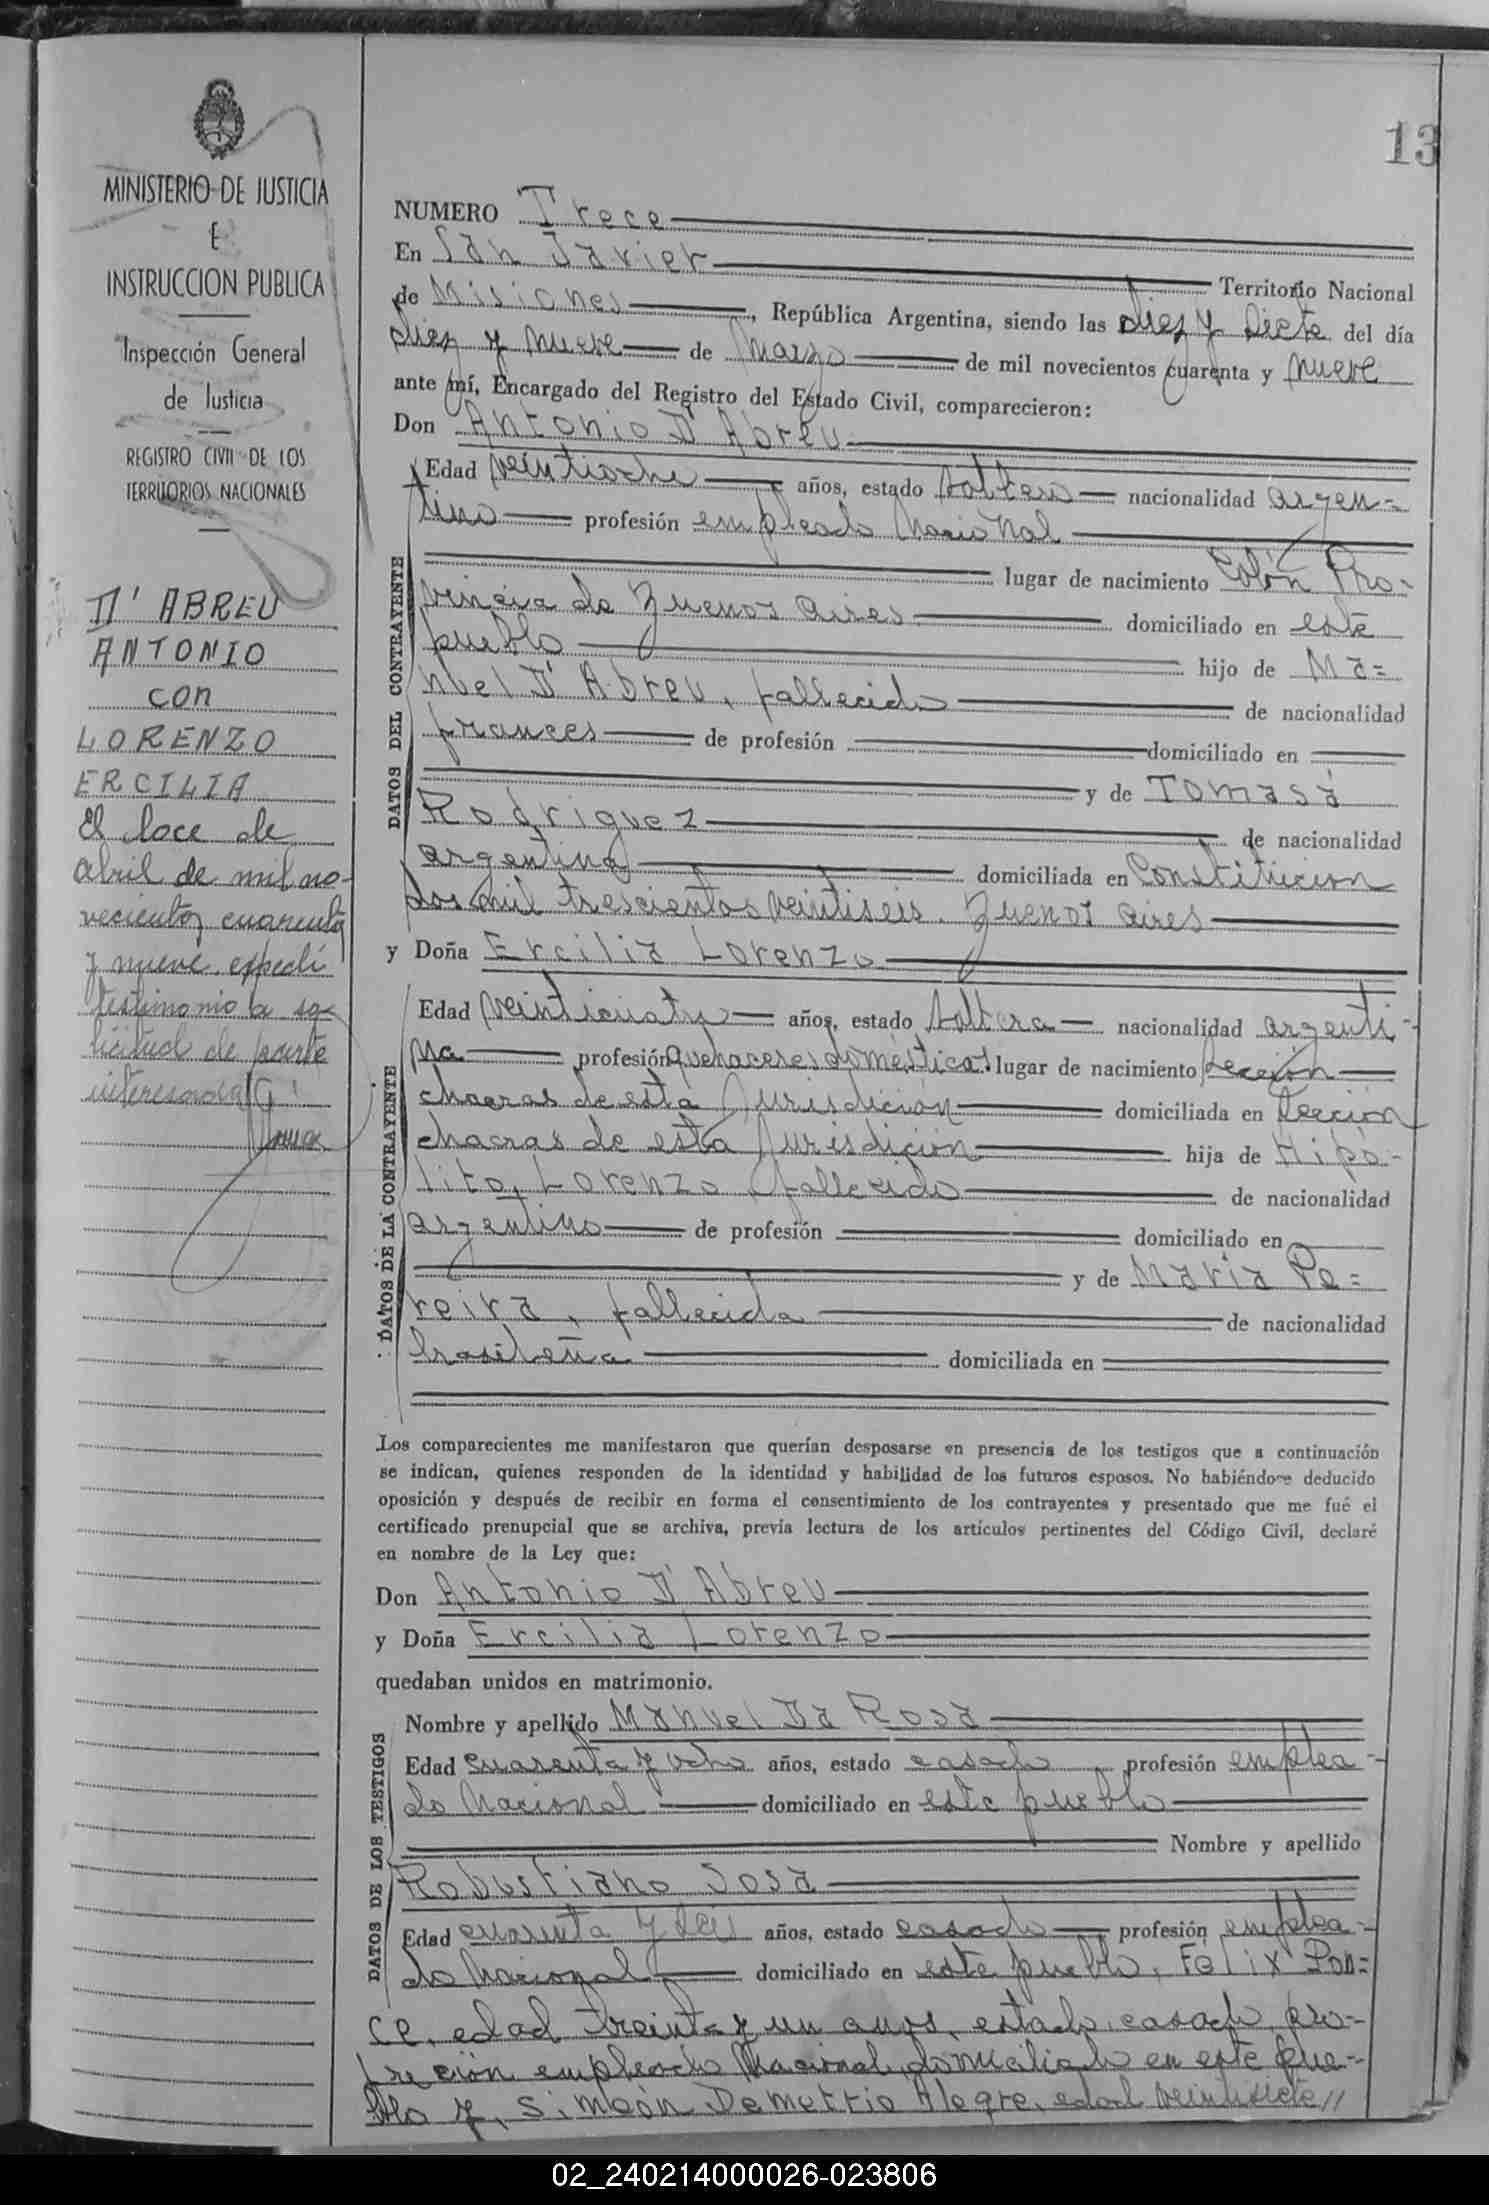 13
MINISTERIO DE JUSTICIA
E
INSTRUCCION PUBLICA
Inspección General
de Justicia
REGISTRO CIVIL DE LOS
TERRITORIOS NACIONALES
D' ABREU
ANTONIO
con
LORENZO
ERCILIA
El doce de
abril de mil no-
vecientos cuarenta
y nueve, expedí
testimonio a so-
licitud de parte
interesada
NUMERO Trece
En San Javier Territorio Nacional
de Misiones, República Argentina, siendo las diez y siete del día
diez y nueve de Marzo de mil novecientos cuarenta y nueve
ante mí, Encargado del Registro del Estado Civil, comparecieron:
Don Antonio D' Abreu
DATOS DEL CONTRAYENTE
Edad veintiocho años, estado soltero nacionalidad argen=
tino profesión empleado Nacional
lugar de nacimiento Colón Pro-
vincia de Buenos Aires domiciliado en este
pueblo hijo de Ma=
nuel D' Abreu, fallecido de nacionalidad
frances de profesión domiciliado en
y de Tomasa
Rodriguez de nacionalidad
argentina domiciliada en Constitucion
dos mil trescientos veintiseis. Buenos Aires
y Doña Ercilia Lorenzo
DATOS DE LA CONTRAYENTE
Edad veinticuatro años, estado soltera nacionalidad argenti-
na profesión Quehaceres domésticos lugar de nacimiento Sección
chacras de esta Jurisdición domiciliada en Sección
chacras de esta Jurisdición hija de Hipó-
lito Lorenzo, fallecido de nacionalidad
argentino de profesión domiciliado en
y de Maria Pe=
reira, fallecida de nacionalidad
brasileña domiciliada en
Los comparecientes me manifestaron que querían desposarse en presencia de los testigos que a continuación
se indican, quienes responden de la identidad y habilidad de los futuros esposos. No habiéndose deducido
oposición y después de recibir en forma el consentimiento de los contrayentes y presentado que me fué el
certificado prenupcial que se archiva, previa lectura de los artículos pertinentes del Código Civil, declaré
en nombre de la Ley que:
Don Antonio D' Abreu
y Doña Ercilia Lorenzo
quedaban unidos en matrimonio.
DATOS DE LOS TESTIGOS
Nombre y apellido Manuel Da Rosa
Edad cuarenta y ocho años, estado casado profesión emplea-
do Nacional domiciliado en este pueblo
Nombre y apellido
Robustiano Sosa
Edad cuarenta y seis años, estado casado profesión emplea-
do Nacional domiciliado en este pueblo, Félix Pon=
ce, edad treinta y un anos, estado casado, pro-
fección empleado Nacional, domiciliado en este pue-
blo y, Simeón Demetrio Alegre, edad veintisiete//
02_240214000026-023806